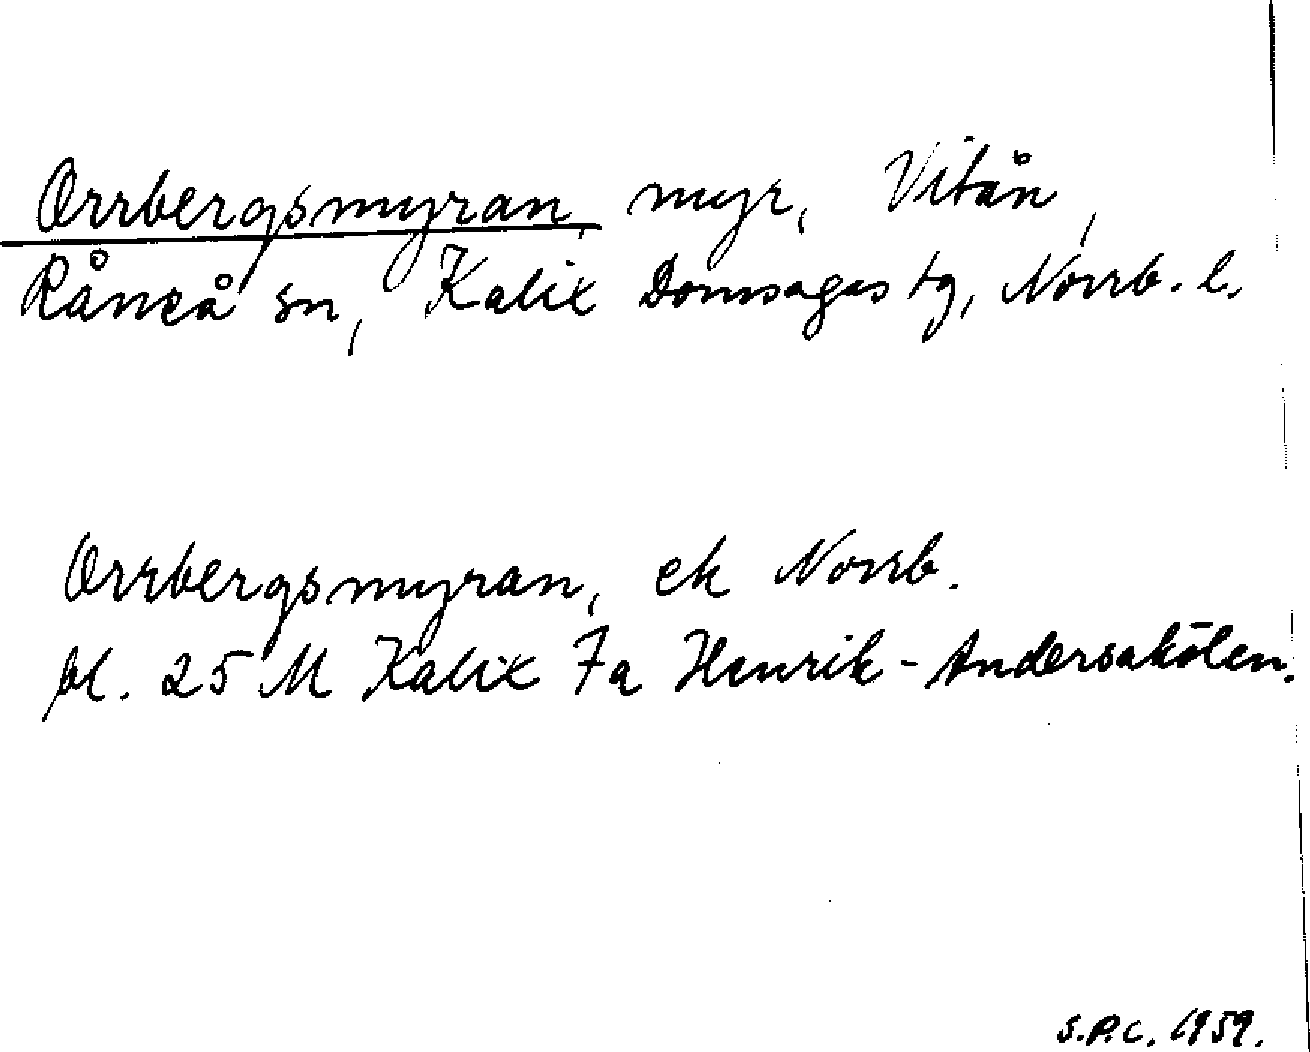 Orrbergsmyran, myr, Vitån,
Råneå sn, Kalix Domsagas tg, Norrb. l.
Orrbergsmyran, ek Norrb.
bl. 25 M Kalix 7a Henrik-Andersakölen.
S.P.C. 1959.